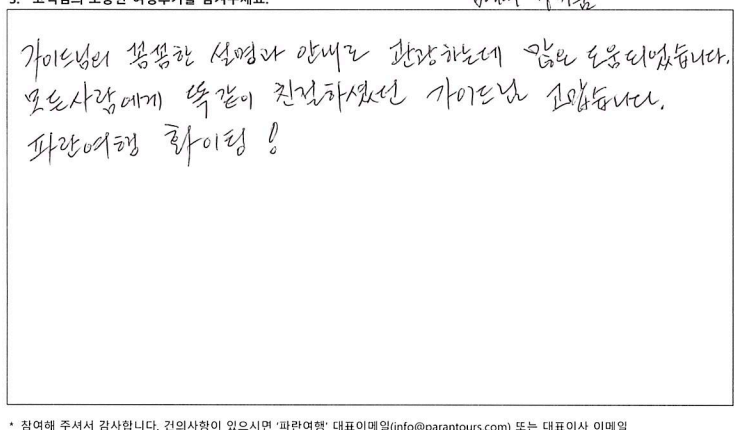 가이드님의 꼼꼼한 설명과 안내로 관광하는데 많은 도움되었습니다.
모든사람에게 똑같이 친절하셨던 가이드님 고맙습니다.
파란여행 화이팅!
* 참여해 주셔서 감사합니다. 건의사항이 있으시면 '파란여행' 대표이메일(info@parantours.com) 또는 대표이사 이메일